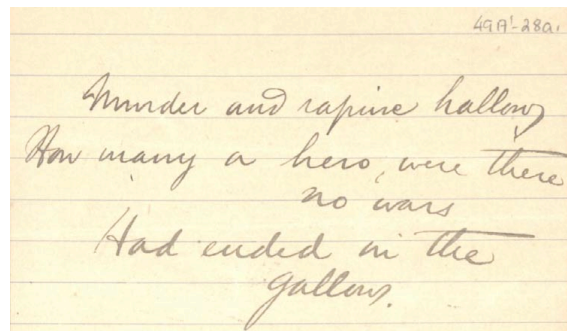 49A'-28a.
Murder and rapine hallows
How many a hero, were there
no wars
Had ended in the
gallows.